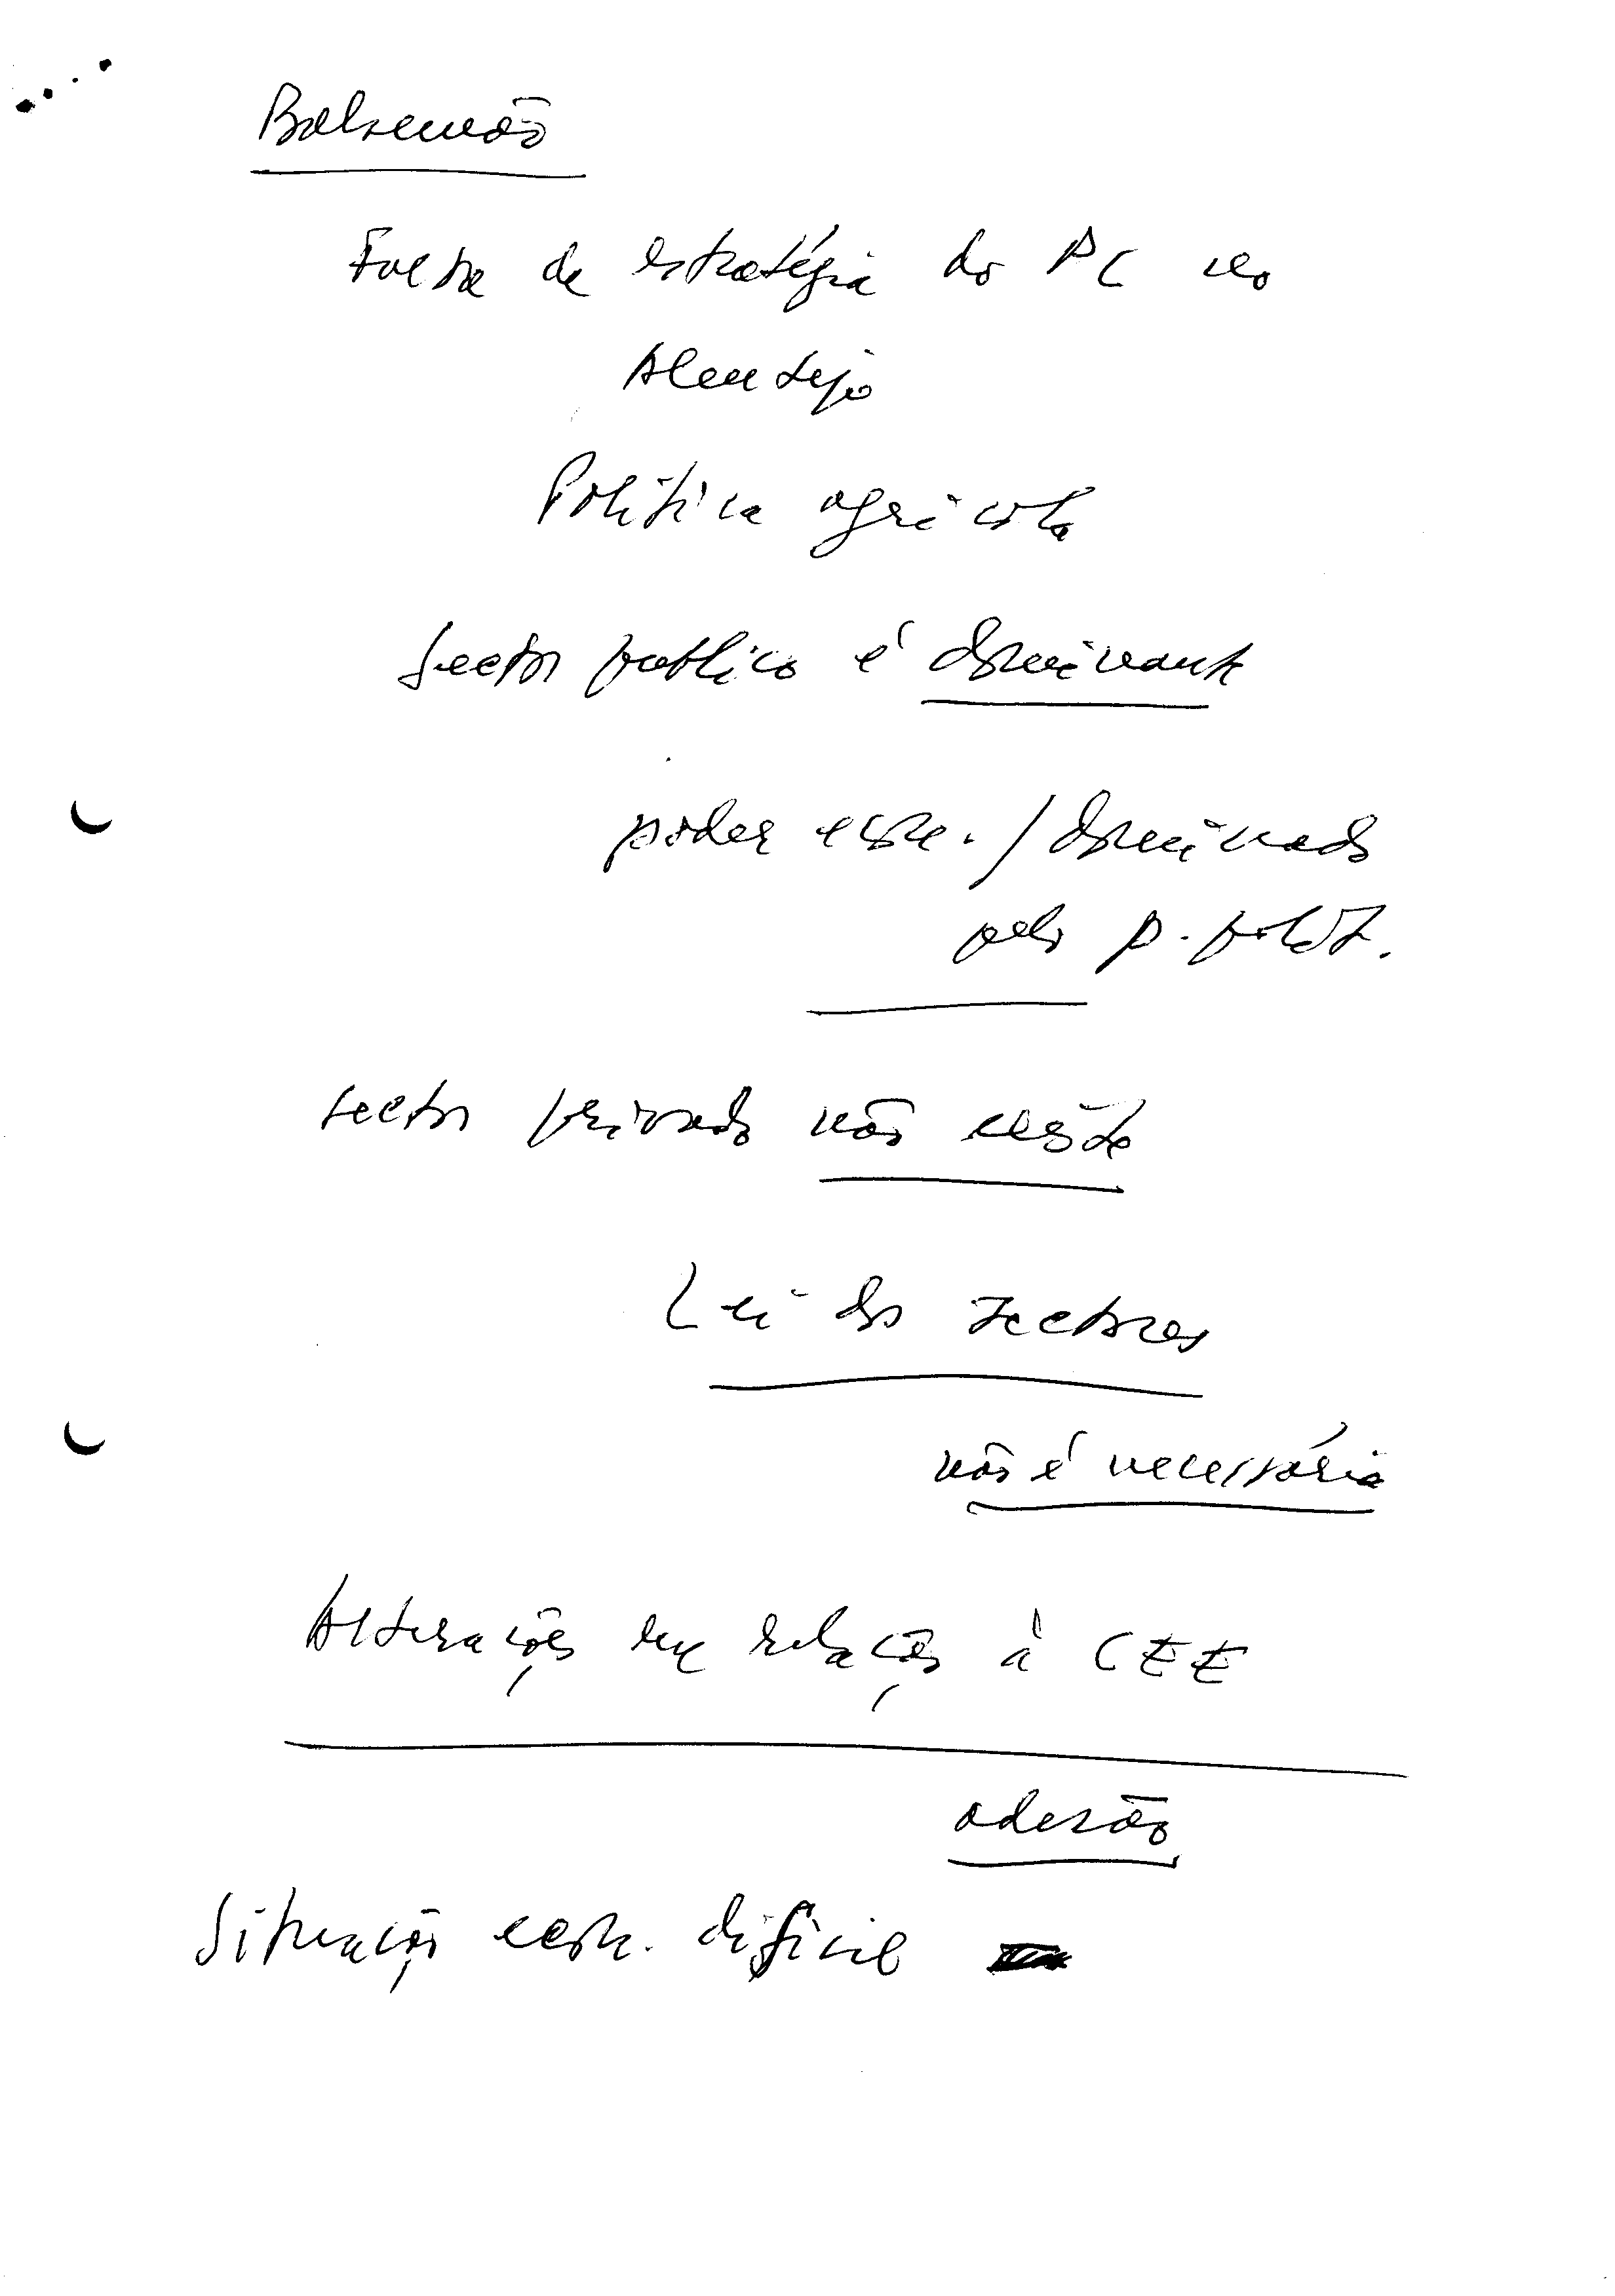 Balsemão
Falta de estratégia do PC no
Alentejo
Política agrícola
Sector publico é dominante
poder econ. / dominado
pelo p. polít.
sector privado não existe
Lei dos sectores
não é necessária
Alterações em relação à CEE
adesão
Situação econ. difícil